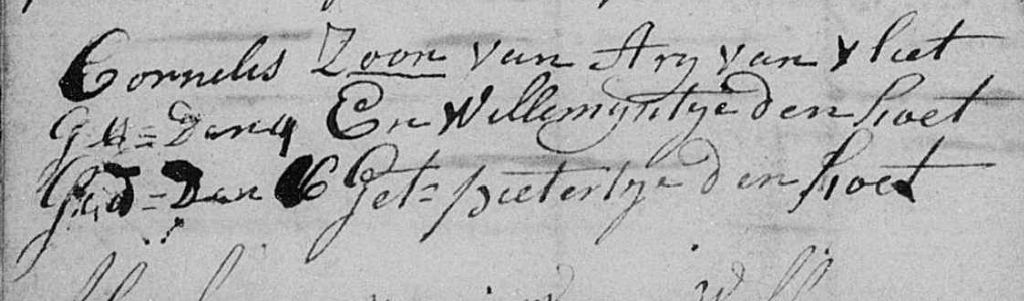 Cornelis Zoon van Ary van Vliet
Geb = Den 4 En Willemyntje den hoet
Ged = Den 16 Get = pietertje den hoet